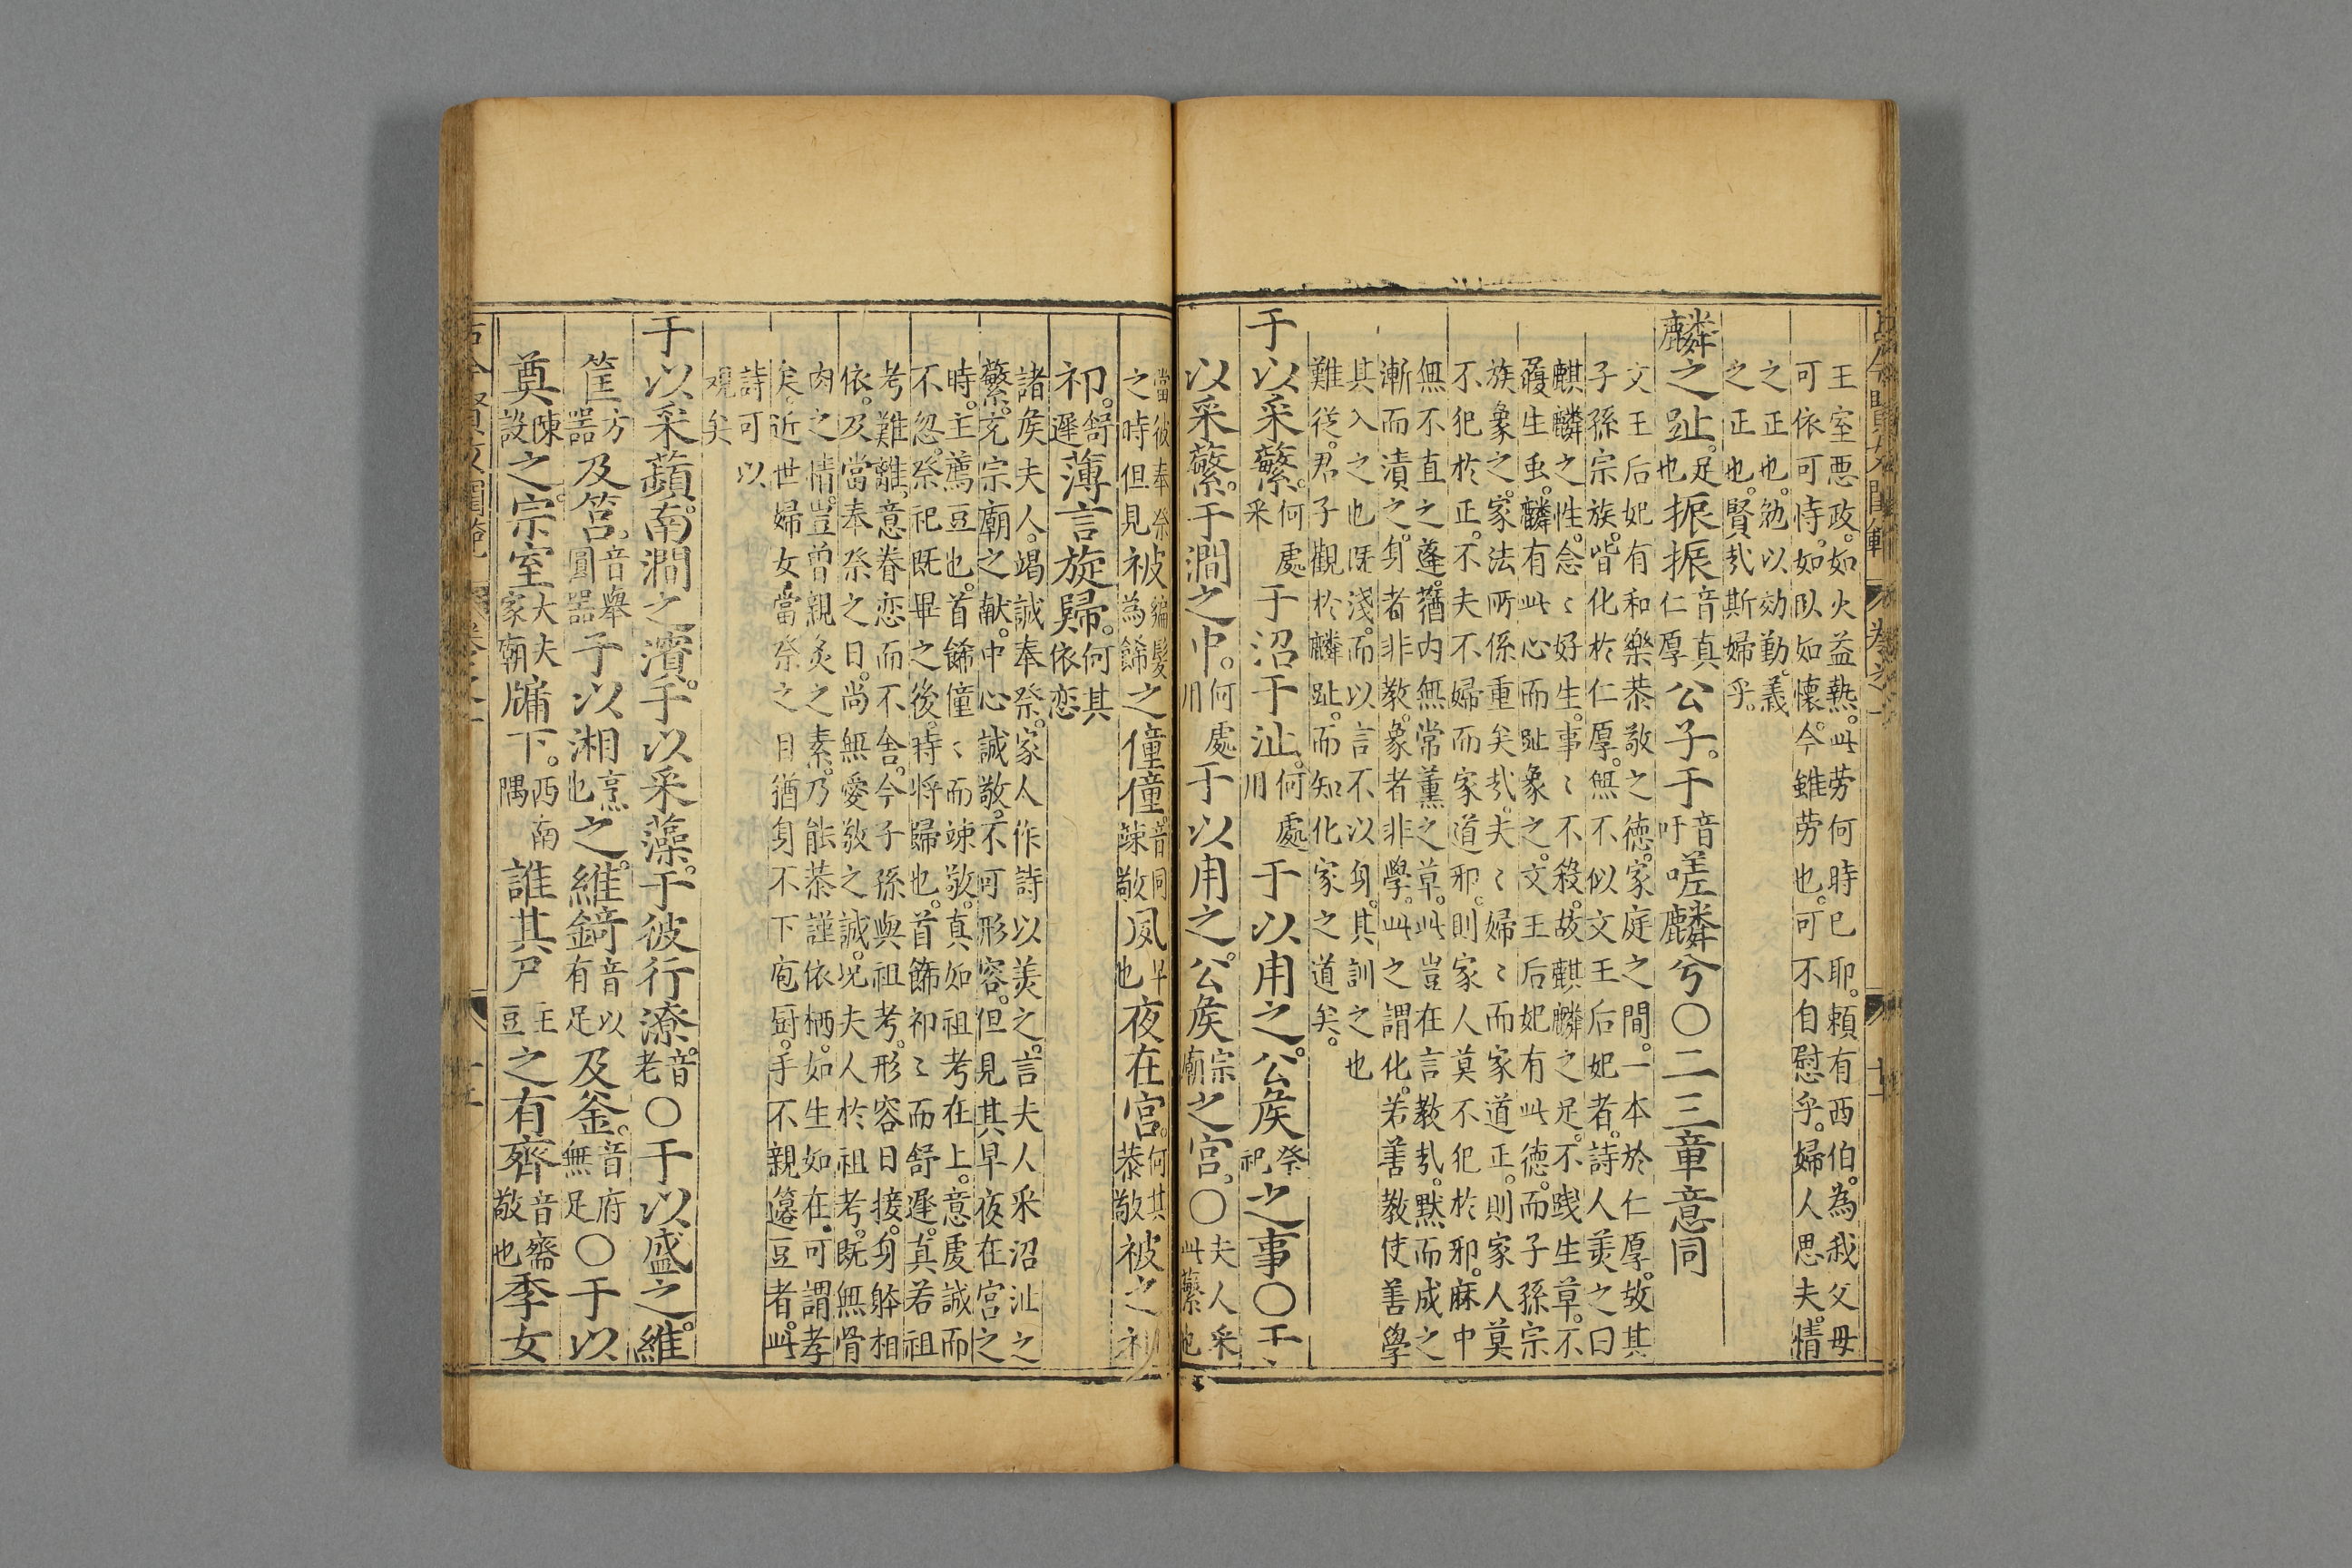 王室悪政。如火益熱。此劳何時已耶。頼有西伯。為我父母
可依可恃。如臥如懷。今雖劳也。可不自慰乎。婦人思夫。情
之正也。勉以効勤。義
之正也。賢㢤斯婦乎。
麟之趾。足也振振音真仁厚公子。于音吁嗟麟兮〇二三章意同
文王后妃有和樂恭敬之徳。家庭之間。一本於仁厚。故其
子孫宗族。皆化於仁厚。無不似文王后妃者。詩人羙之曰
麒麟之性。念〻好生。事〻不殺。故麒麟之足。不踐生草。不
履生虫。麟有此心而趾象之。文王后妃有此徳。而子孫宗
族象之。家法所係重矣㢤。夫〻婦〻而家道正。則家人莫
不犯於正。不夫不婦而家道邪。則家人莫不犯於邪。麻中
無不直之蓬。蕕内無常薫之草。此豈在言教㢤。黙而成之
漸而漬之。身者非教。象者非學。此之謂化。若善教使善學
其入之也既淺。而以言不以身。其訓之也
難従。君子觀於麟趾。而知化家之道矣。
于以采蘩。何處采于沼于沚。何處用于以用之。公矦祭祀之事〇于
以采蘩。于澗之中。何處用于以用之。公矦宗廟之宫。〇夫人采此蘩也
當彼奉祭之時但見被編髮為餙之僮僮。音同竦敬夙早也夜在宫。何其恭敬被之祁
祁。舒遲薄言旋歸。何其依恋
諸矦夫人。竭誠奉祭。家人作詩以羙之。言夫人采沼沚之
蘩。充宗廟之献。中心誠敬。不可形容。但見其早夜在宫之
時。主薦豆也。首餙僮〻而竦敬。真如祖考在上。意處誠而
不忽。祭祀既畢之後。時将歸也。首餙祁〻而舒遲。真若祖
考難離。意眷恋而不舍。今子孫與祖考。形容日接。身躰相
依。及當奉祭之日。尚無愛敬之誠。况夫人於祖考。既無骨
肉之情。豈曾親炙之素。乃能恭謹依栖。如生如在。可謂孝
矣。近世婦女。當祭之日。猶身不下庖厨。手不親籩豆者。此
詩可以
觀矣
于以采蘋。南澗之濱。于以采藻。于彼行潦。音老〇于以盛之。維
筐方器及筥。音舉圓器于以湘烹也之。維錡音以有足及釜。音府無足〇于以
奠陳設之。宗室大夫家廟牖下。西南隅誰其尸主豆之有齊音齋敬也季女